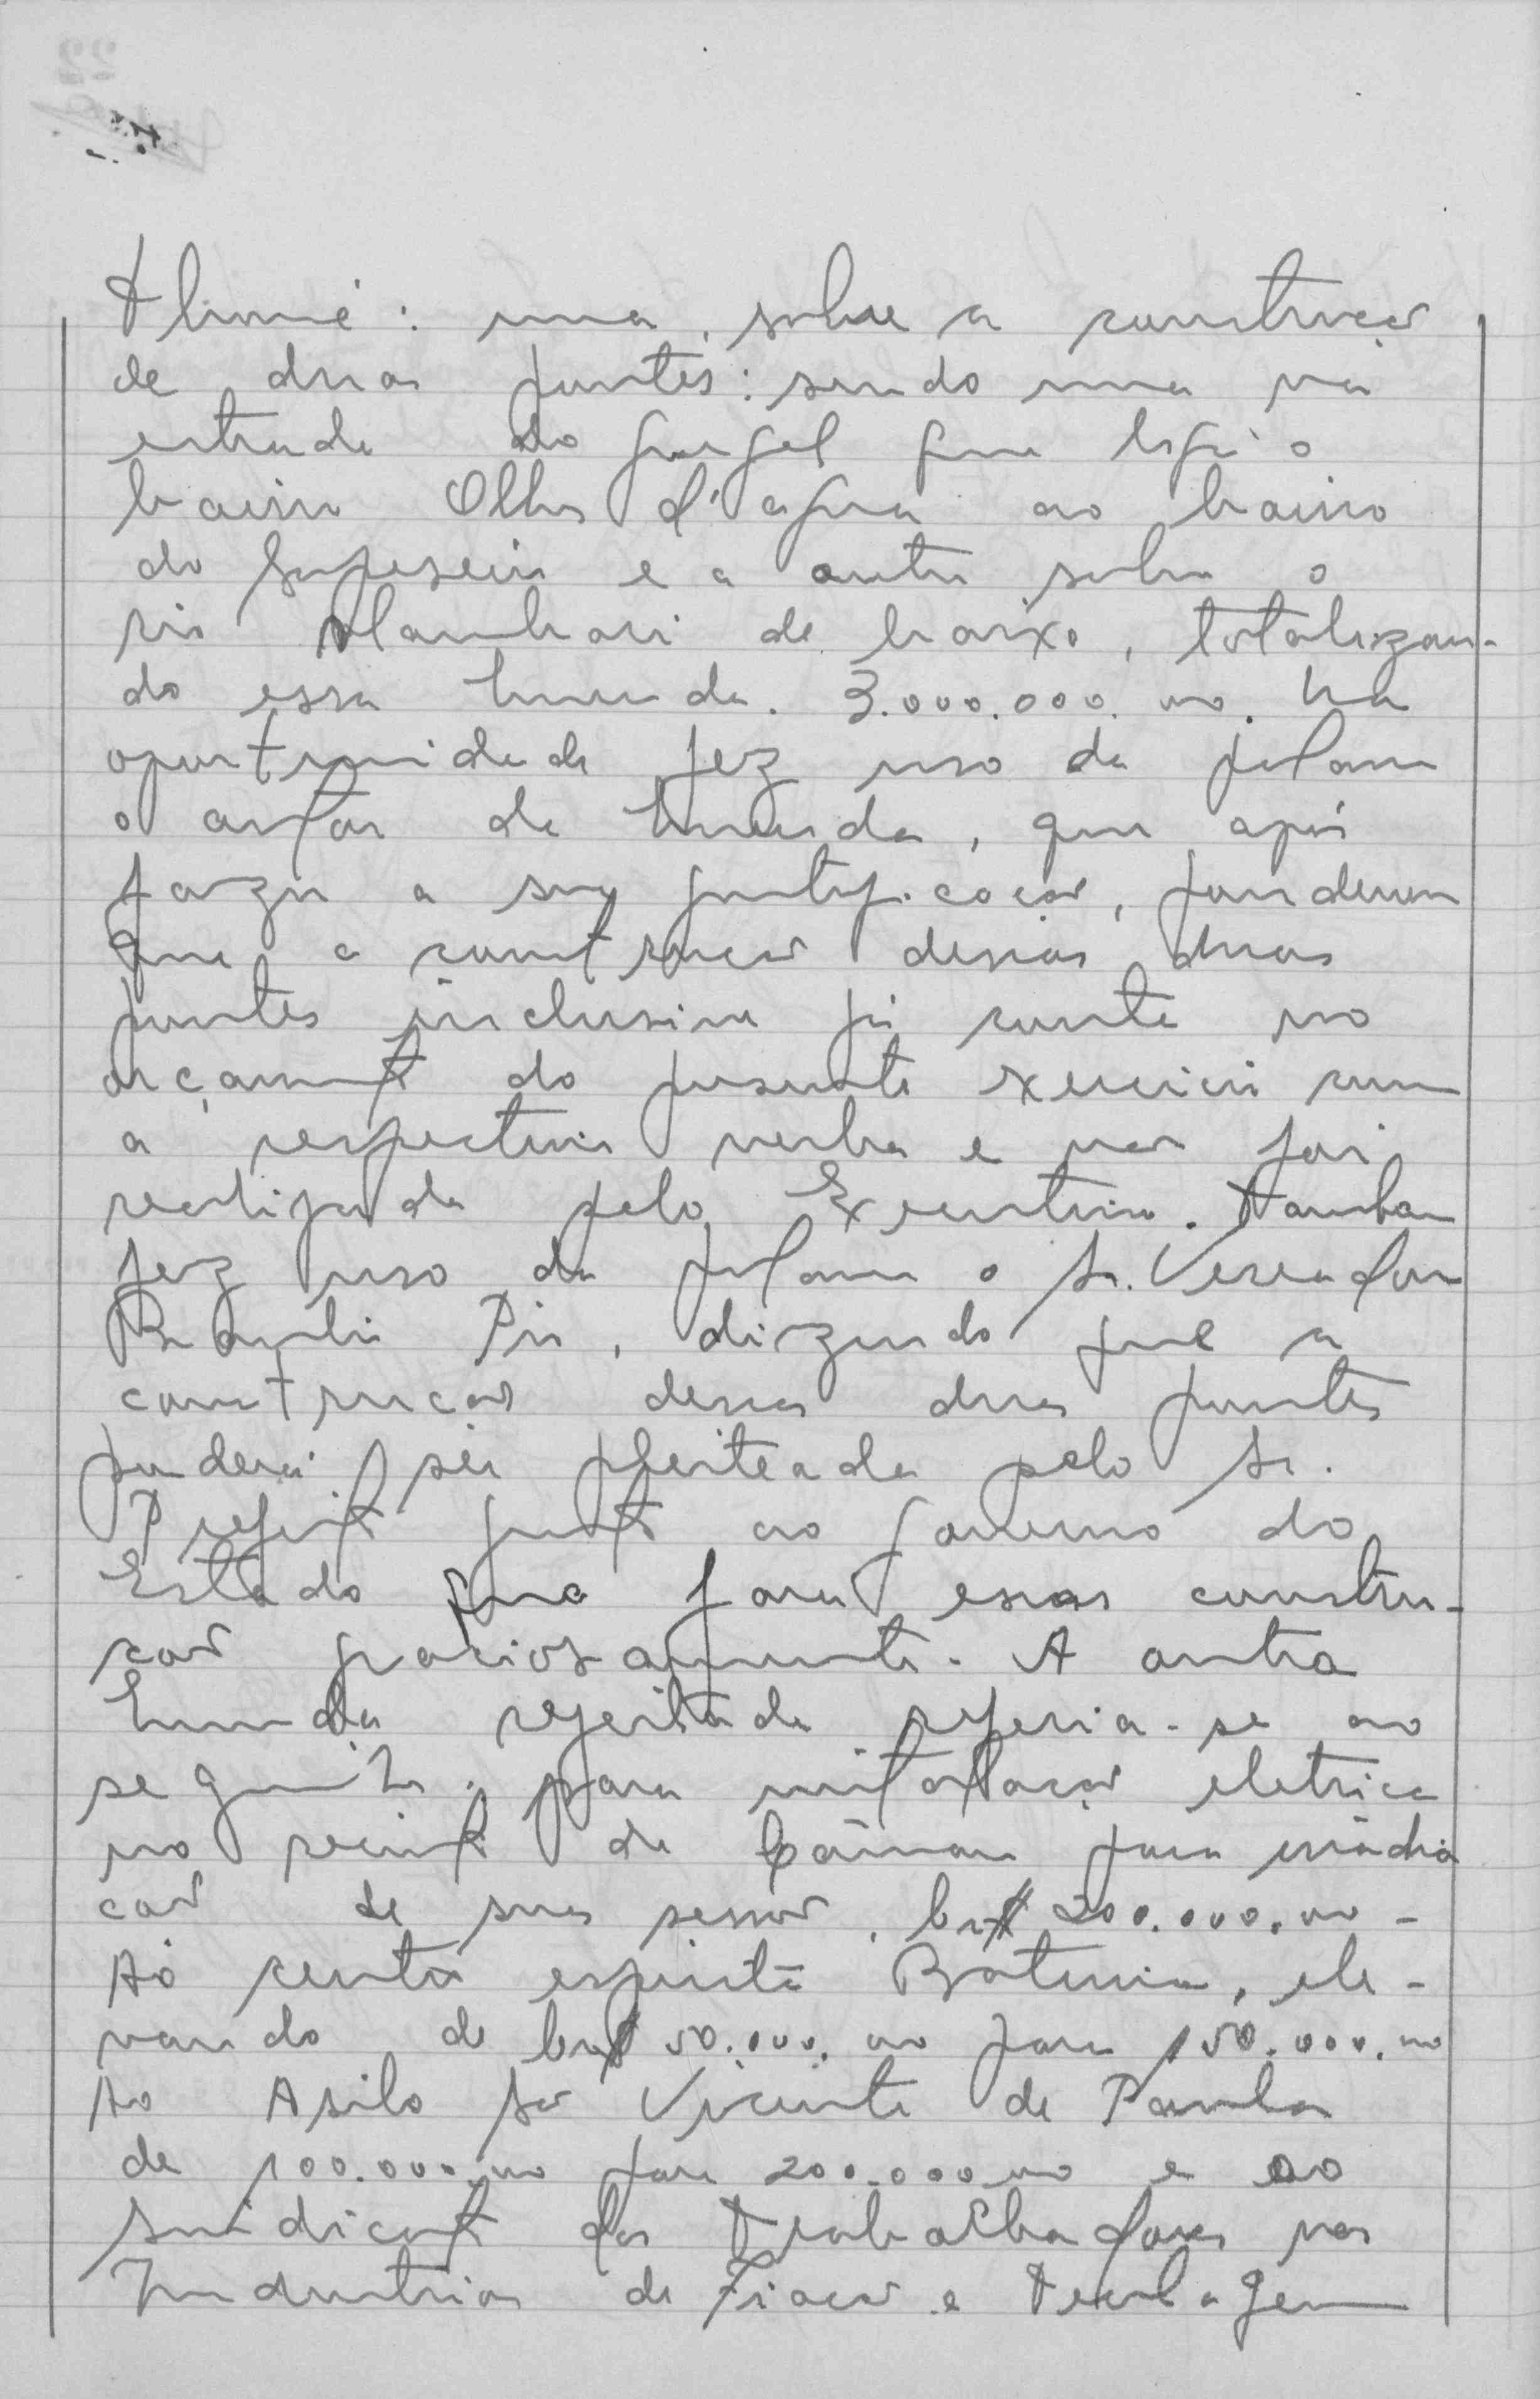 Thomé: uma, sobre a construção
de duas pontes: sendo uma na
estrada do Gurgel que liga o
bairro Olhos d'agua ao bairro
do e a outra sobre o
rio Alambari de baixo, totalizan-
do essa Emenda. 3.000.000,00. Na
oportunidade fez uso da palavra
o autor da Emenda, que após
fazer a sua justificação, ponderou
que a construção dessas duas
pontes inclusive já consta no
orçamento do presente exercicio com
a respectiva verba e não foi
realizada pelo Executivo. Tambem
fez uso da palavra o Sr. Vereador
Braulio Pio, dizendo que a
construção dessas duas pontes
poderá ser pleiteada pelo Sr.
Prefeito junto ao Governo do
Estado que fará essas constru-
ção graciosamente. A outra
Emenda rejeitada referia-se ao
seguinte: para instalação eletrica
no recinto da Câmara para irradia
ção de suas sessão, Cr$ 200.000,00 -
Ao centro espirita Batuira, ele-
vando de Cr$ 50.000,00 para 150.000,00
Ao Asilo São Vicente de Paula
de 100.000,00 para 200.000,00 e ao
Sindicato dos Trabalhadores nas
Industrias de Fiação e Tecelagem